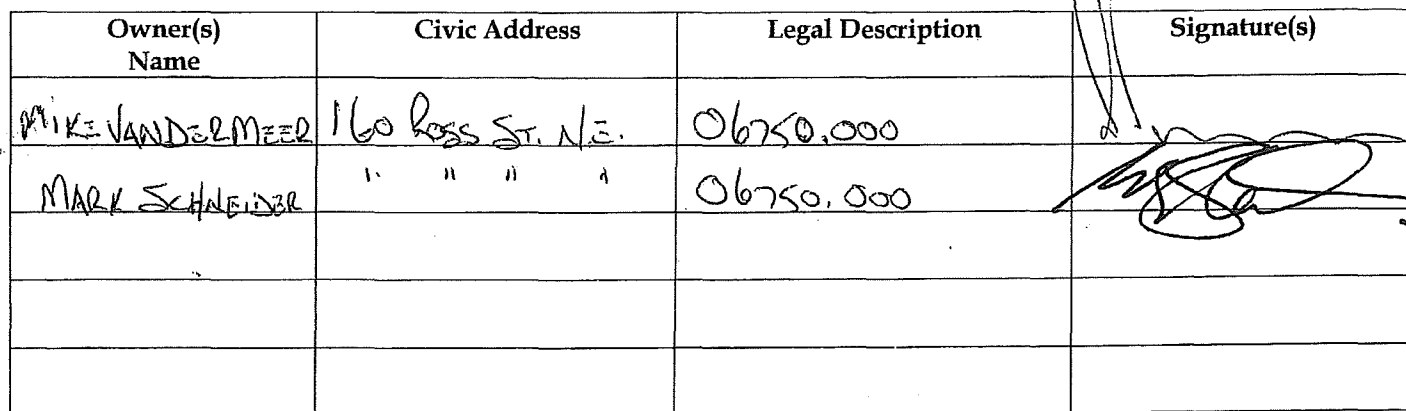 Owner(s) Name Civic Address Legal Description Signature(s)
MIKE VANDERMEER 160 Ross St. N.E. 06750.000
MARK SCHNEIDER " " " " 06750.000